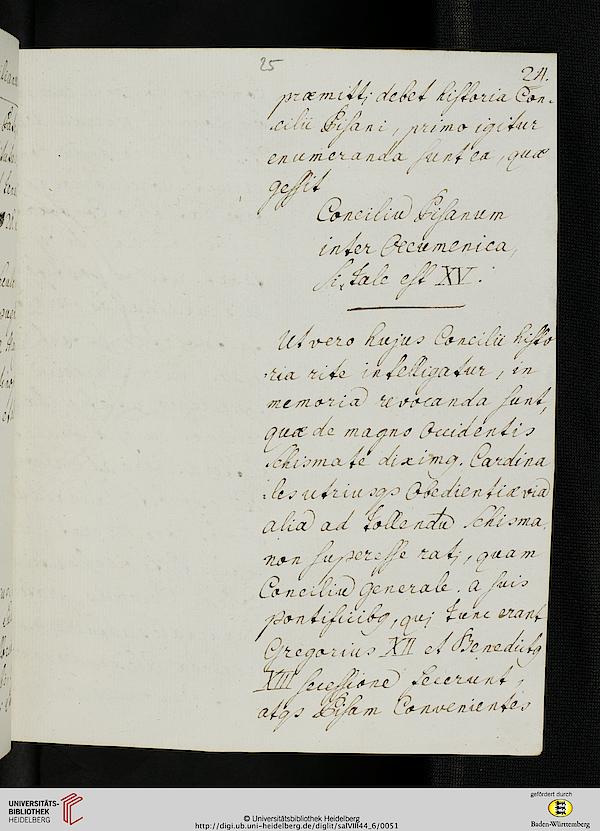 25
24.
præmitti debet historia Con-
cilii Pisani, primo igitur
enumeranda sunt ea, quæ
gessit
Conciliū Pisanum
inter Oecumenica,
si tale est XV.
Ut vero hujus Concilii histo
ria rite intelligatur, in
memoriā revocanda sunt,
quæ de magno Occidentis
schismate diximg. Cardina
les utriusqs Obedientiæ viā
aliā ad tollendū schisma,
non superesse rati, quam
Conciliū generale. a suis
pontificibg, qui tunc erant
Gregorius XII et Benedictg
XIII secessionē fecerunt,
atqs Pisam Convenientes
UNIVERSITÄTS-
BIBLIOTHEK
HEIDELBERG
© Universitätsbibliothek Heidelberg
http://digi.ub.uni-heidelberg.de/diglit/salVIII44_6/0051
gefördert durch
Baden-Württemberg